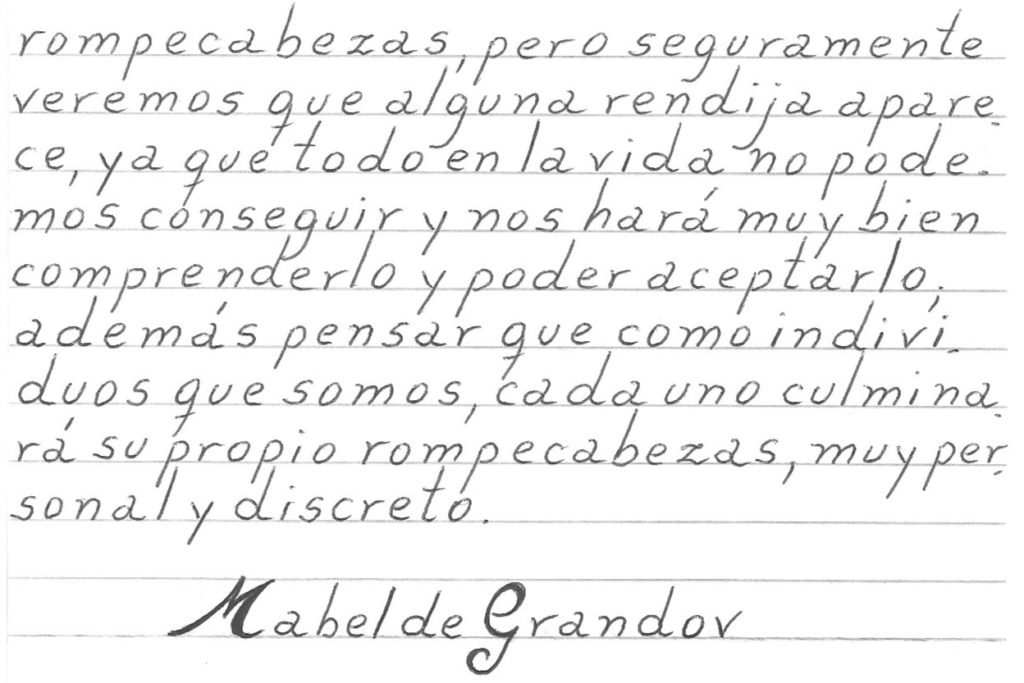 rompecabezas, pero seguramente
veremos que alguna rendija apare-
ce, ya que todo en la vida no pode-
mos conseguir y nos hará muy bien
comprenderlo y poder aceptarlo;
además pensar que como indivi-
duos que somos, cada uno culmina-
rá su propio rompecabezas, muy per-
sonal y discreto.
Mabel de Grandov